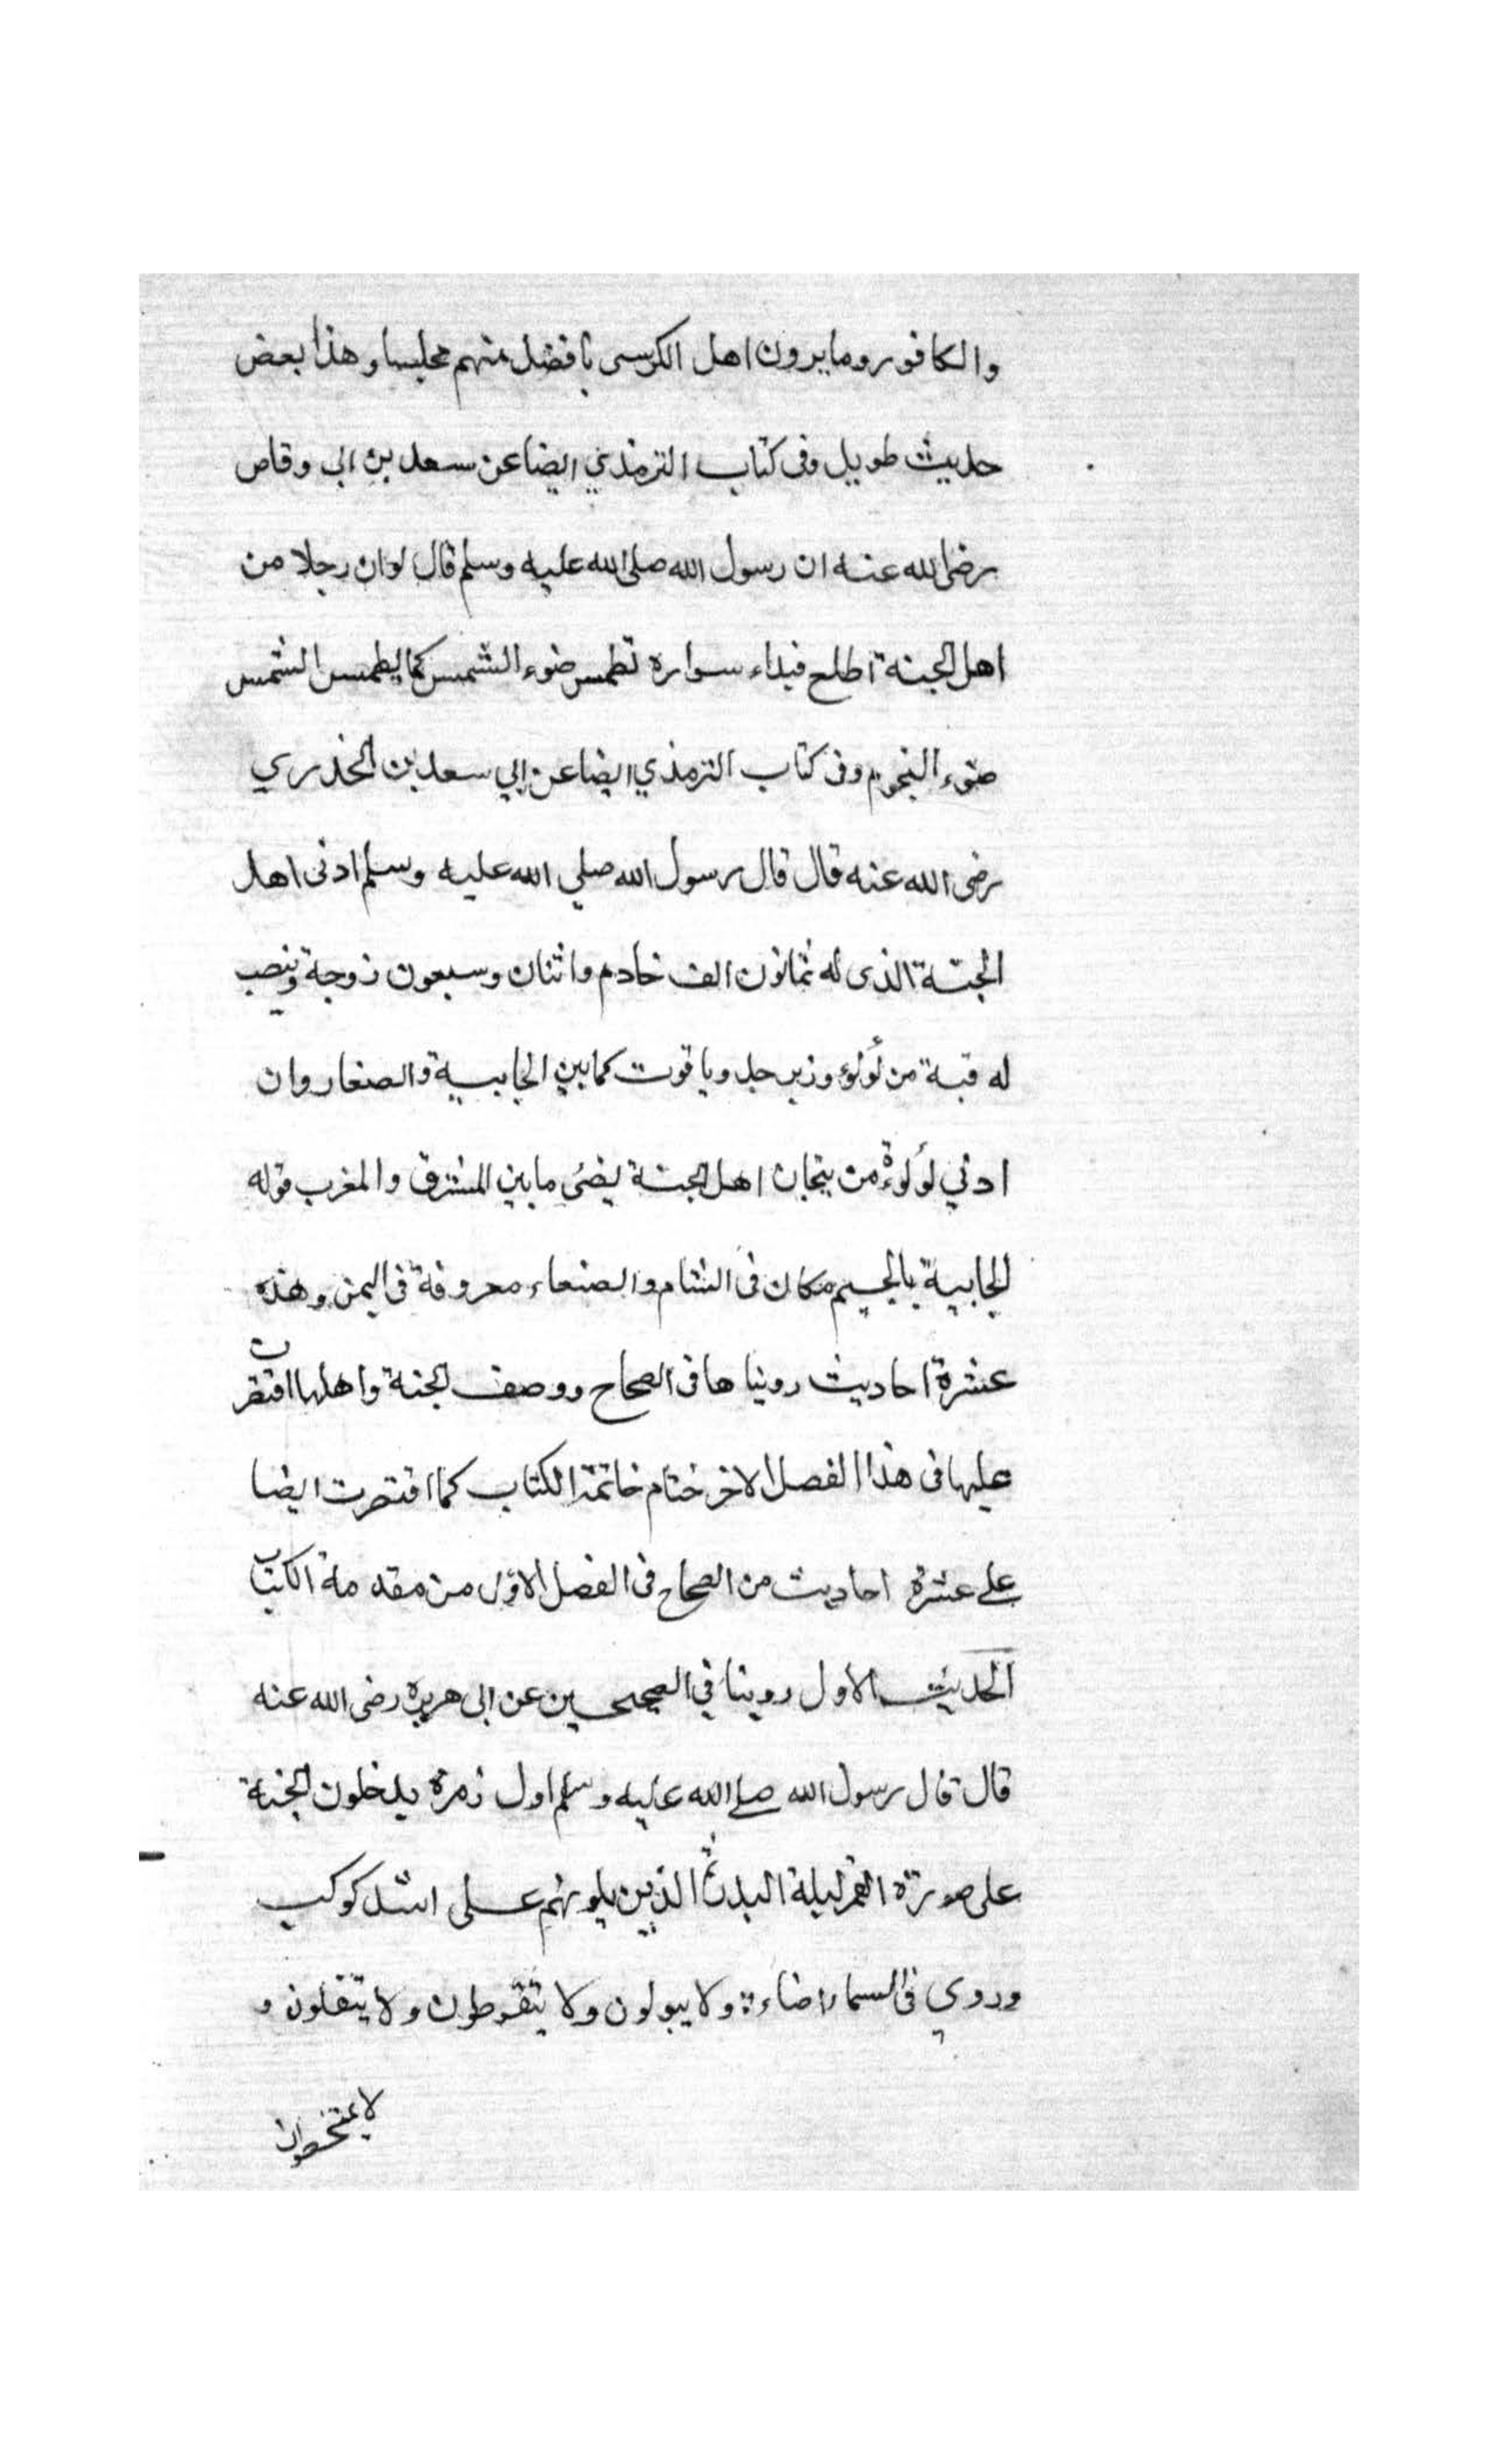 والكافور وما يرون اهل الكرسى بافضل منهم مجلسا وهذا بعض
حديث طويل وفى كتاب الترمذي ايضا عن سعد بن ابى وقاص
رضى الله عنه ان رسول الله صلى الله عليه وسلم قال لوان رجلا من
اهل الجنة اطلع فبداء سواره تطمس ضوء الشمس كما يطمس الشمس
ضوء النجوم وفى كتاب الترمذي ايضا عن ابي سعد بن الخدري
رضى الله عنه قال قال رسول الله صلي الله عليه وسلم ادنى اهل
الجنة الذى له ثمانون الف خادم واثنان وسبعون زوجة وينصب
له قبة من لؤلؤ وزبرجد وياقوت كما بين الجابية والصنعا وان
ادني لؤلوءة من تيجان اهل الجنة يضئ ما بين المشرق والمغرب قوله
الجابية بالجيم مكان فى الشام والصنعاء معروفة فى اليمن وهذه
عشرة احاديث روينا ها فى الصحاح ووصف الجنة واهلها اقتصرت
عليها فى هذا الفصل الاخر ختام خاتمة الكتاب كما اقتصرت ايضا
على عشرة احاديث من الصحاح فى الفصل الاول من مقدمة الكتاب
الحديث الاول روينا في الصحيحين عن ابى هريرة رضى الله عنه
قال قال رسول الله صلى الله عليه وسلم اول زمرة يدخلون الجنة
على صورة القمر ليلة البدر ثم الذين يلونهم على اشد كوكب
وروي فى السماء اضاءة ولا يبولون ولا يتغوطون ولا يتفلون و
لا يمتخطون